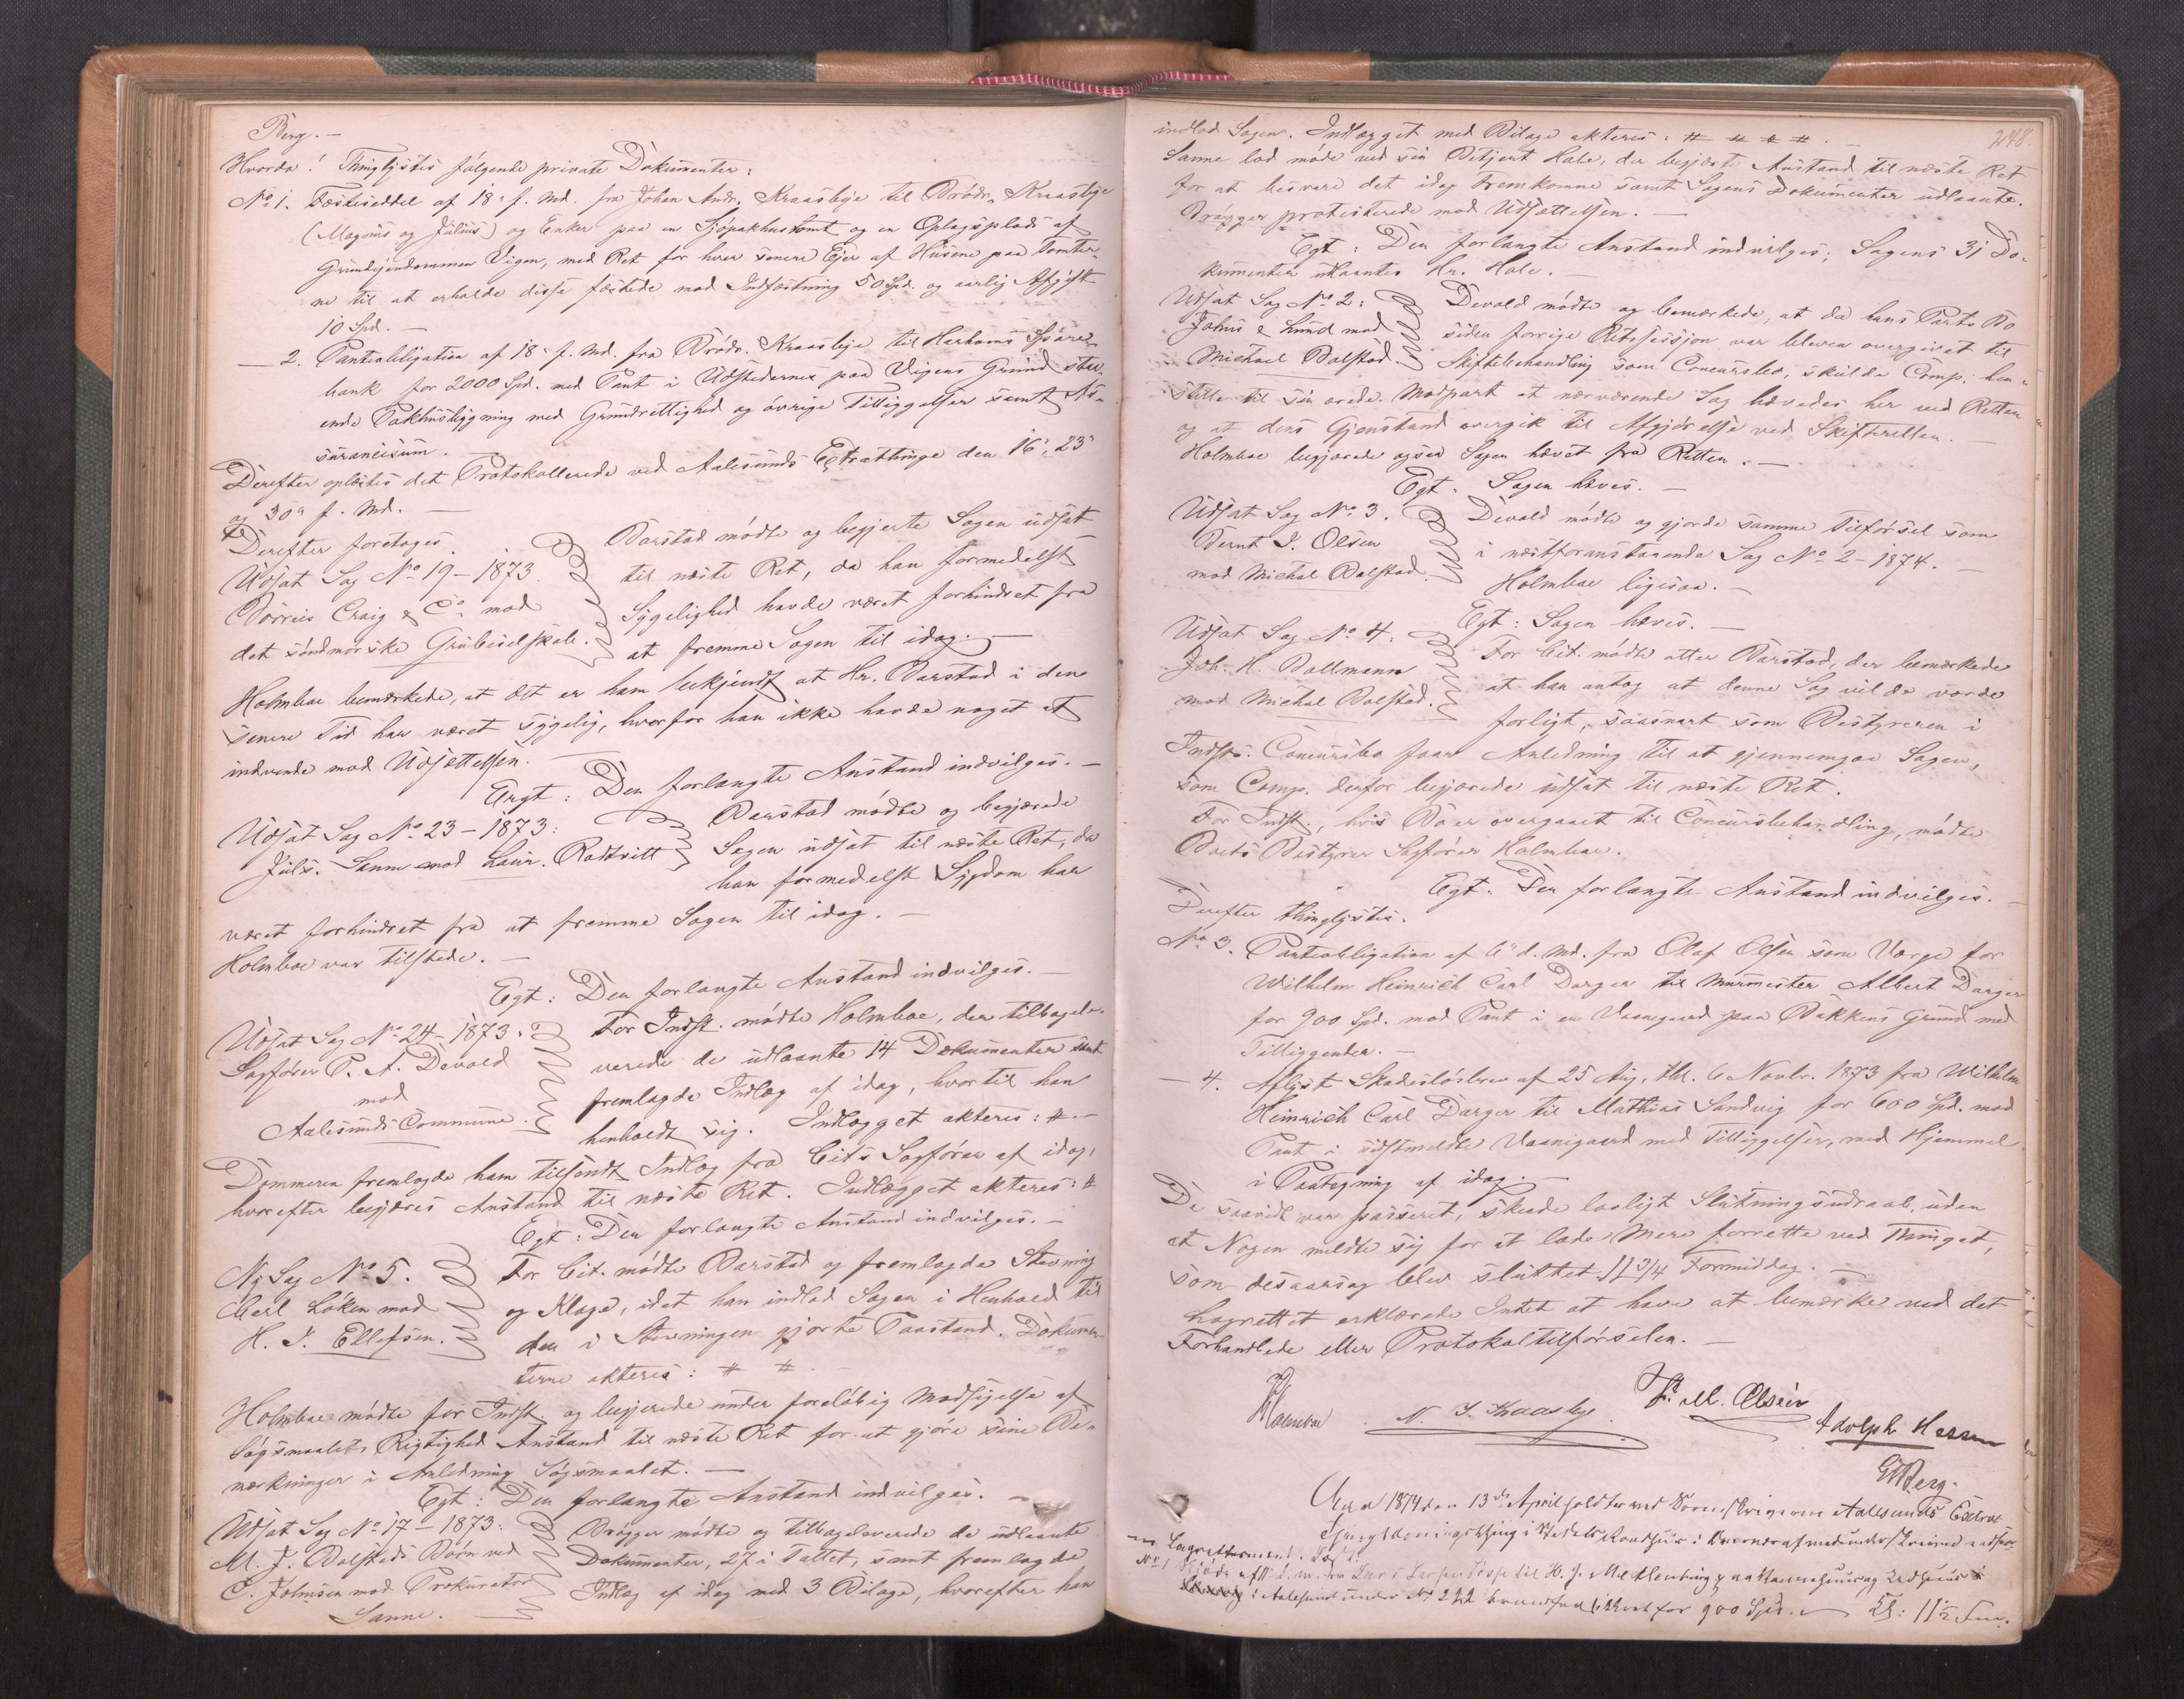 Berg. —
Hvorda! Thinglystes følgende private Dokumenter:
No 1. Fæsteseddel af 18. f. Md. fra Johan Andr. Kraasbye til Brødr. Kraasbye
(Magnus og Julius) og Enker paa en Sjøpakhustomt og en Oplagsplads af
Grundejendommen Vigen, med Ret for hver senere Ejer af Husene paa Tomter-
ne til at erholde disse fæstede mod Indfæstning 50 Spd. og aarlig Afgift
10 Spd. —
— 2. Pantobligation af 18. f. Md. fra Brødr. Kraasbye til Harhams Spare-
bank for 2000 Spd. med Pant i Udstedernes paa Vigens Grund staa-
ende Pakhusbygning med Grundrettighed og øvrige Tilliggelser samt As-
surancesum. —
Derefter oplæstes det Protokollerede ved Aalesunds Extrathinge den 16., 23.
og 30. f. Md. —
Derefter foretoges
Udsat Sag No 19 – 1873.
Craig & Co mod
det søndmørske Grubeselskab.
Barstad mødte og begjerte Sagen udsat
til næste Ret, da han formedelst
Sygelighed havde været forhindret fra
at fremme Sagen til idag. —
Holmboe bemærkede, at det er ham bekjendt at Hr. Barstad i den
senere Tid har været sygelig, hvorfor han ikke havde noget at
indvende mod Udsættelsen. —
Eragt: Den forlangte Anstand indvilges. —
Udsat Sag No 23 – 1873:
Juls. Sanne mod Laur. Rodtvitt
Barstad mødte og begjærede
Sagen udsat til næste Ret, da
han formedelst Sygdom har
været forhindret fra at fremme Sagen til idag. —
Holmboe var tilstede. —
Egt: Den forlangte Anstand indvilges. —
Udsat Sag No 24 – 1873:
Sagfører P. A. Devold
mod
Aalesunds Commune.
For Indst. mødte Holmboe, der tilbagele-
verede de udlaante 14 Dokumenter samt
fremlagde Indlæg af idag, hvortil han
henholdt sig. Indlægget akteres: #. —
Dommeren fremlagde ham tilsendt Indlæg fra Cits Sagfører af idag,
hvorefter begjæres Anstand til næste Ret. Indlægget akteres: #
Egt: Den forlangte Anstand indvilges. —
Ny Sag No 5.
Carl Løken mod
H. J. Ellefsen.
For Cit. mødte Barstad og fremlagde Stevning
og Klage, idet han indlod Sagen i Henhold til
den i Stevningen gjorte Paastand. Dokumen-
terne akteres: # #.
Holmboe mødte for Indst. og begjerede under foreløbig Modsigelse af
Søgsmaalets Rigtighed Anstand til næste Ret for at gjøre sine Be-
mærkninger i Anledning Søgsmaalet. —
Egt: Den forlangte Anstand indvilges. —
Udsat Sag No 17 – 1873:
M. J. Dalsteds Børn ved
C. Johnsen mod Prokurator
Sanne.
Brøgger mødte og tilbageleverede de udlaante
Dokumenter, 27 i Tallet, samt fremlagde
Indlæg af idag med 3 Bilage, hvorefter han
248.
indlod Sagen. Indlægget med Bilage akteres: # # # #. —
Sanne lod møde ved sin Betjent Hole, der begjærte Anstand til næste Ret
for at besvare det idag fremkomne samt Sagens Dokumenter udlaante.
Brøgger protesterede mod Udsættelsen. —
Egt: Den forlangte Anstand indvilges; Sagens 31 Do-
kumenter udlaantes Hr. Hole. —
Udsat Sag No 2:
Jahns & Lund mod
Michael Dalsted.
Devold mødte og bemærkede, at da hans Parts Bo
siden forrige Retssession var bleven overgivet til
Skiftebehandling som Concursbo, skulde Comp. hen-
stille til sin ærede Modpart at nærværende Sag hævedes her ved Retten
og at dens Gjenstand overgik til Afgjørelse ved Skifteretten. —
Holmboe begjærede ogsaa Sagen hævet fra Retten. —
Egt. Sagen hæves. —
Udsat Sag No 3.
Bernt J. Olsen
mod Michal Dalstad.
Devold mødte og gjorde samme Tilførsel som
i næstforanstaaende Sag No 2 – 1874. —
Holmboe ligesaa. —
Egt: Sagen hæves. —
Udsat Sag No 4.
Joh. H. Dallmann
mod Michal Dalstad.
For Cit. mødte atter Barstad, der bemærkede
at han antog at denne Sag vilde vorde
forligt, saasnart som Bestyreren i
Indsts. Concursbo faar Anledning til at gjennemgaa Sagen,
som Comp. derfor begjærede udsat til næste Ret.
For Indst., hvis Bo er overgaaet til Concursbehandling, mødte
Boets Bestyrer Sagfører Holmboe.
Egt: Den forlangte Anstand indvilges. —
Derefter thinglystes.
No 3. Pantobligation af 6. d. Md. fra Olaf Olsen som Værge for
Wilhelm Heinrich Carl Darger til Murmester Albert Darger
for 900 Spd. mod Pant i en Vaanegaard paa Bakkens Grund med
Tilliggender. —
— 4. Aflyst Skadesløsbrev af 25 Aug., thl. 6 Novbr. 1873 fra Wilhelm
Heinrich Carl Darger til Mathias Sandvig for 600 Spd. mod
Pant i sidstmeldte Vaanegaard med Tilliggelser, med Hjemmel
i Paategning af idag. —
De saavidt var passeret, skede lovligt Slutningsudraab, uden
at Nogen meldte sig for at lade Mere forrette ved Thinget,
som desaarsag blev sluttet 11 3/4 Formiddag. —
Lagrettet erklærede Intet at have at bemærke ved det
Forhandlede eller Protokoltilførselen. —
N. J. Kraasbye. M. Olsen
Adolph Hessen
Berg.
Aar 1874 den 13de April holdtes ved Sorenskriveren Aalesunds Extra-
i Byens Raadhus i Overvær af
Lagrettesmænd.
No 1
i Aalesund under No 222 for 900 Spd. — Kl: 11 1/2 Form.